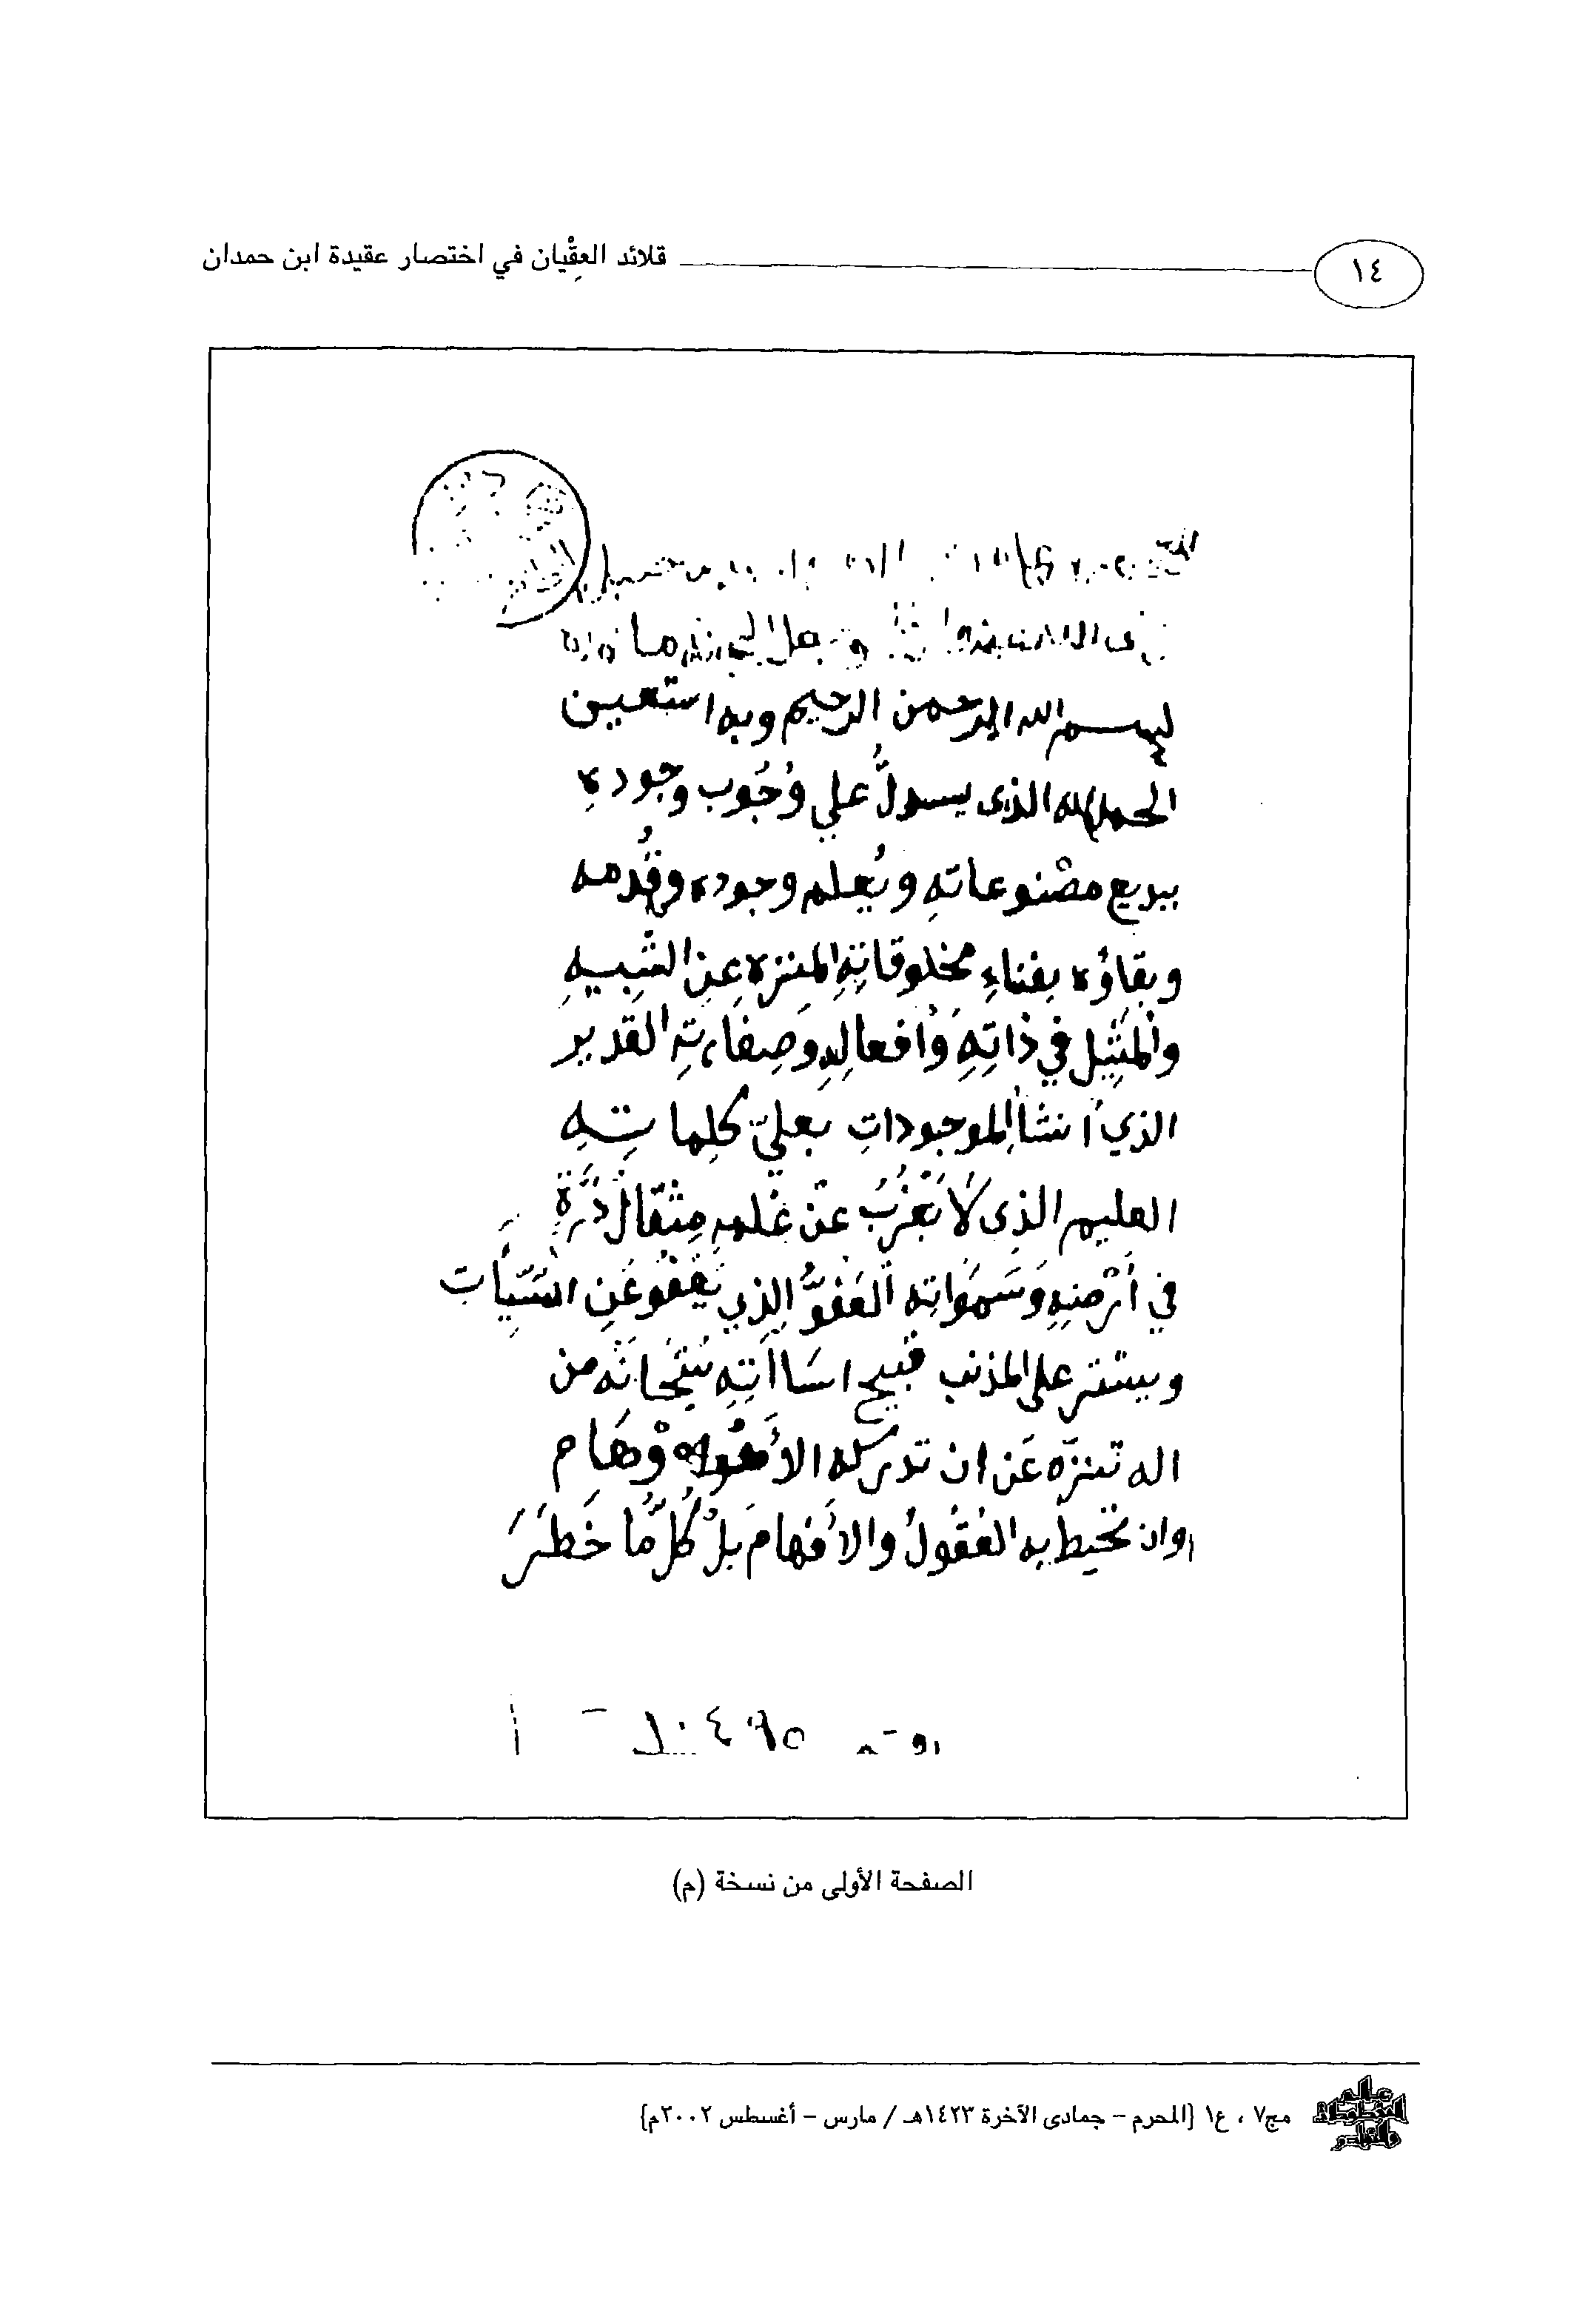 ١٤
قلائد العِقْيان في اختصار عقيدة ابن حمدان
بسم الله الرحمن الرحيم وبه استعين
الحمد لله الذى يستدلُّ علي وُجُوب وجوده
ببديع مصْنوعاتهِ ويُعلم وجوده وقُدمه
وبقاؤه بفناءِ مخلوقاتهِ المنزه عن الشبيهِ
والمَثِيل في ذاتِهِ وَأفعالِهِ وصِفاتِهِ القدير
الذي أنشأ الموجوداتِ بعليّ كلِماتِهِ
العليم الذى لَا يَعْزُبُ عَن عَلمهِ مِثقالُ ذَرَّةٍ
في أرْضِهِ وَسَمَواتِهِ العَفوُّ الذي يَعْفُو عَنِ السَّيِّأت
ويستتر على المذنب قبيح اساآتِهِ سُبْحانَه من
اله تنزّه عَن ان تدركه الأوْهَام
وان تحيط به العُقُولُ والأفهامَ بلْ كُلَّمَا خَطَرَ
الصفحة الأولى من نسخة (م)
عالم المخطوطات والنوادر
مج٧ ، ع١ {المحرم – جمادى الآخرة ١٤٢٣هـ / مارس – أغسطس ٢٠٠٢م}